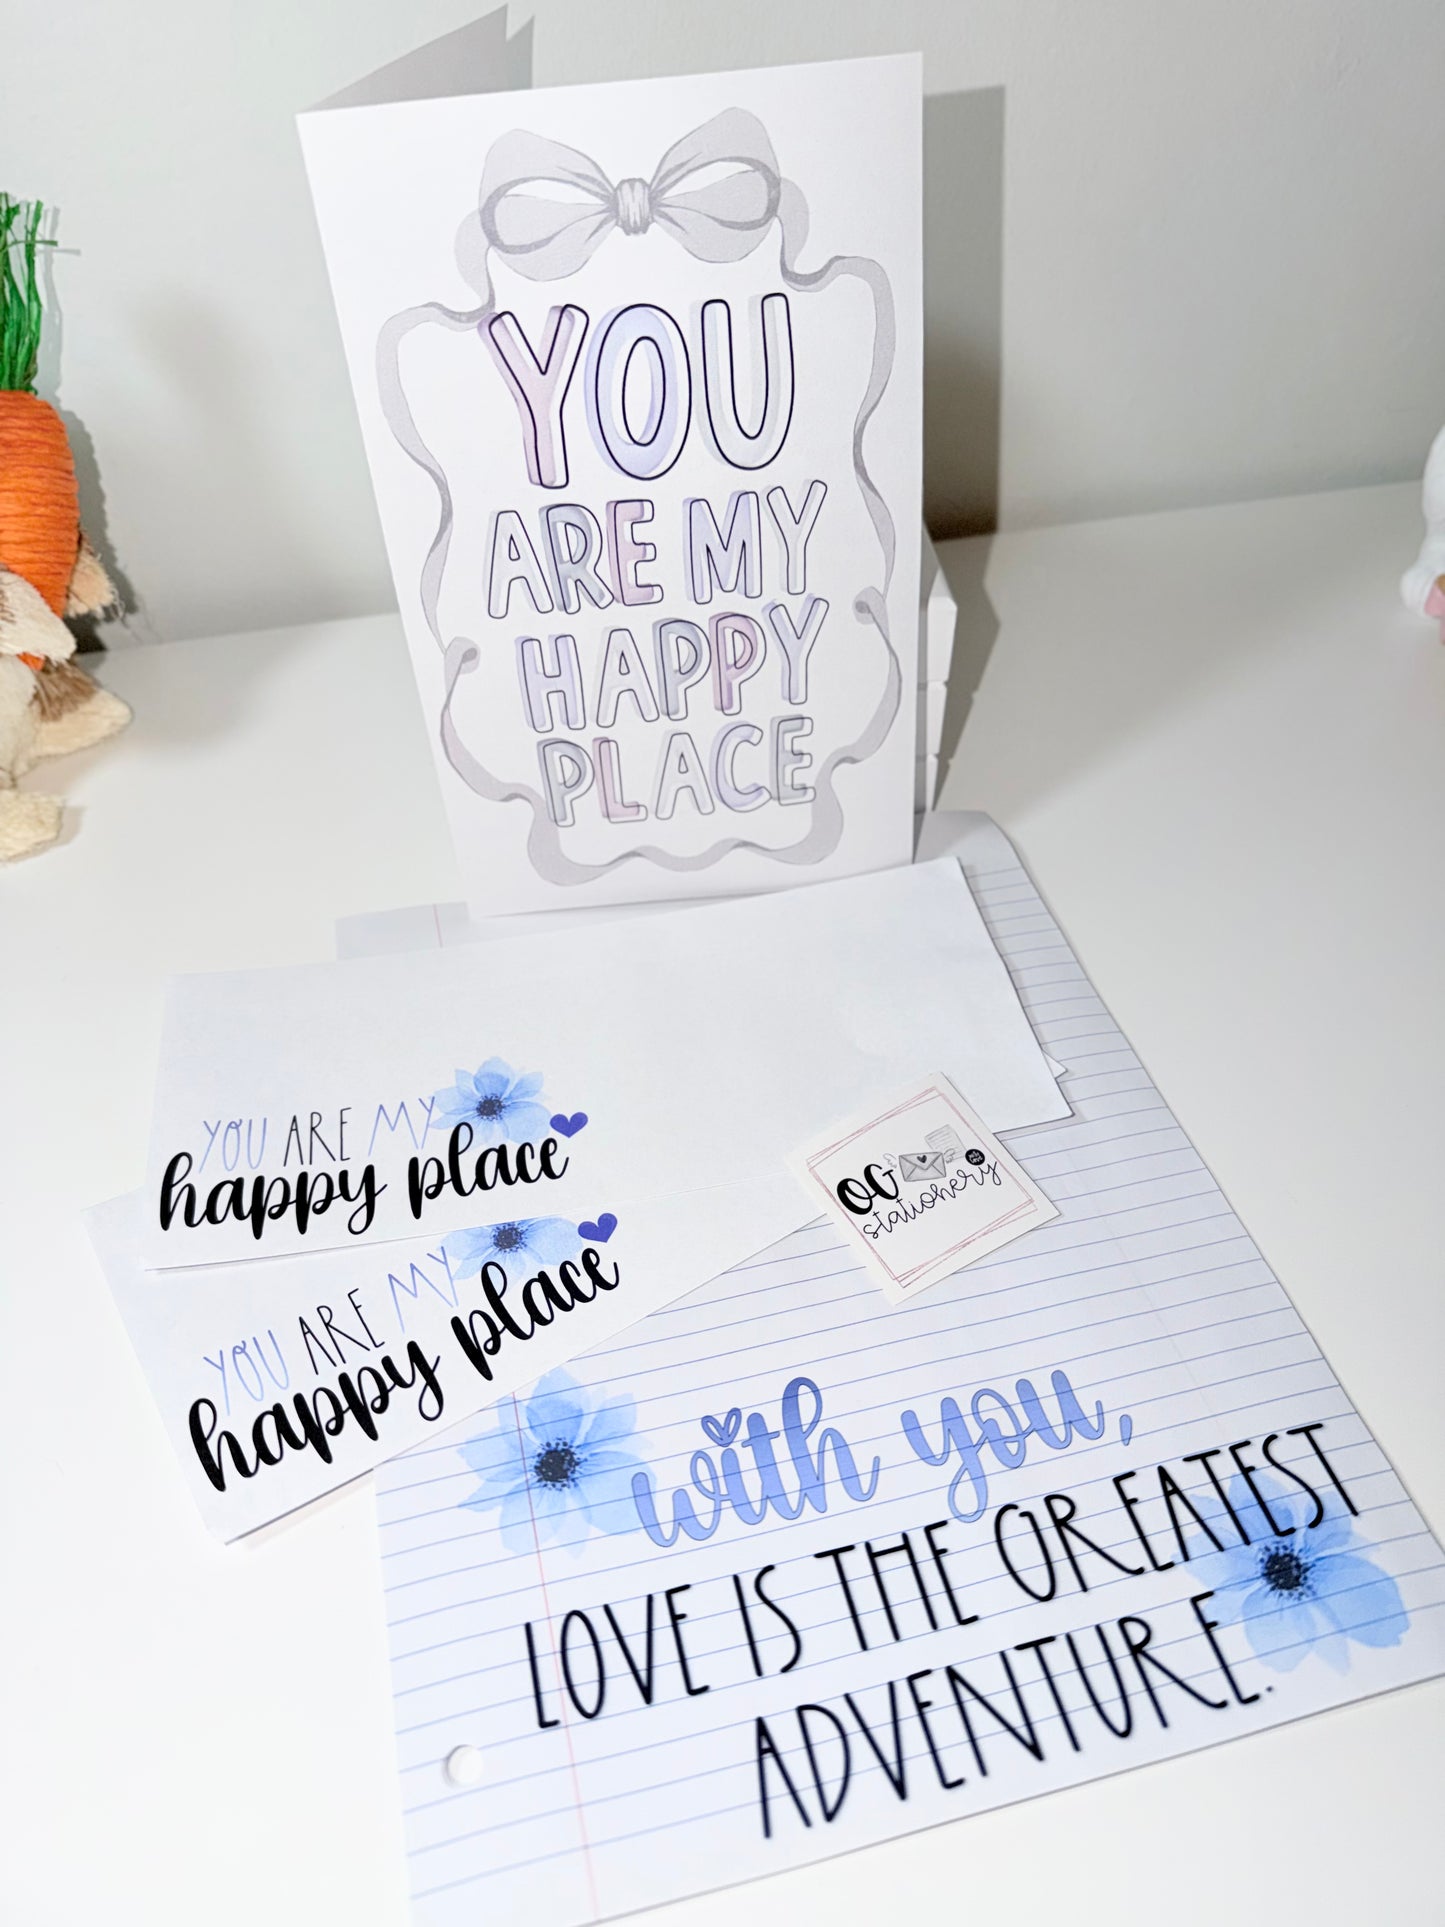 YOU
ARE MY
HAPPY
PLACE
YOU ARE MY
happy place
YOU ARE MY
happy place
OG
stationery
with you,
LOVE IS THE GREATEST
ADVENTURE.